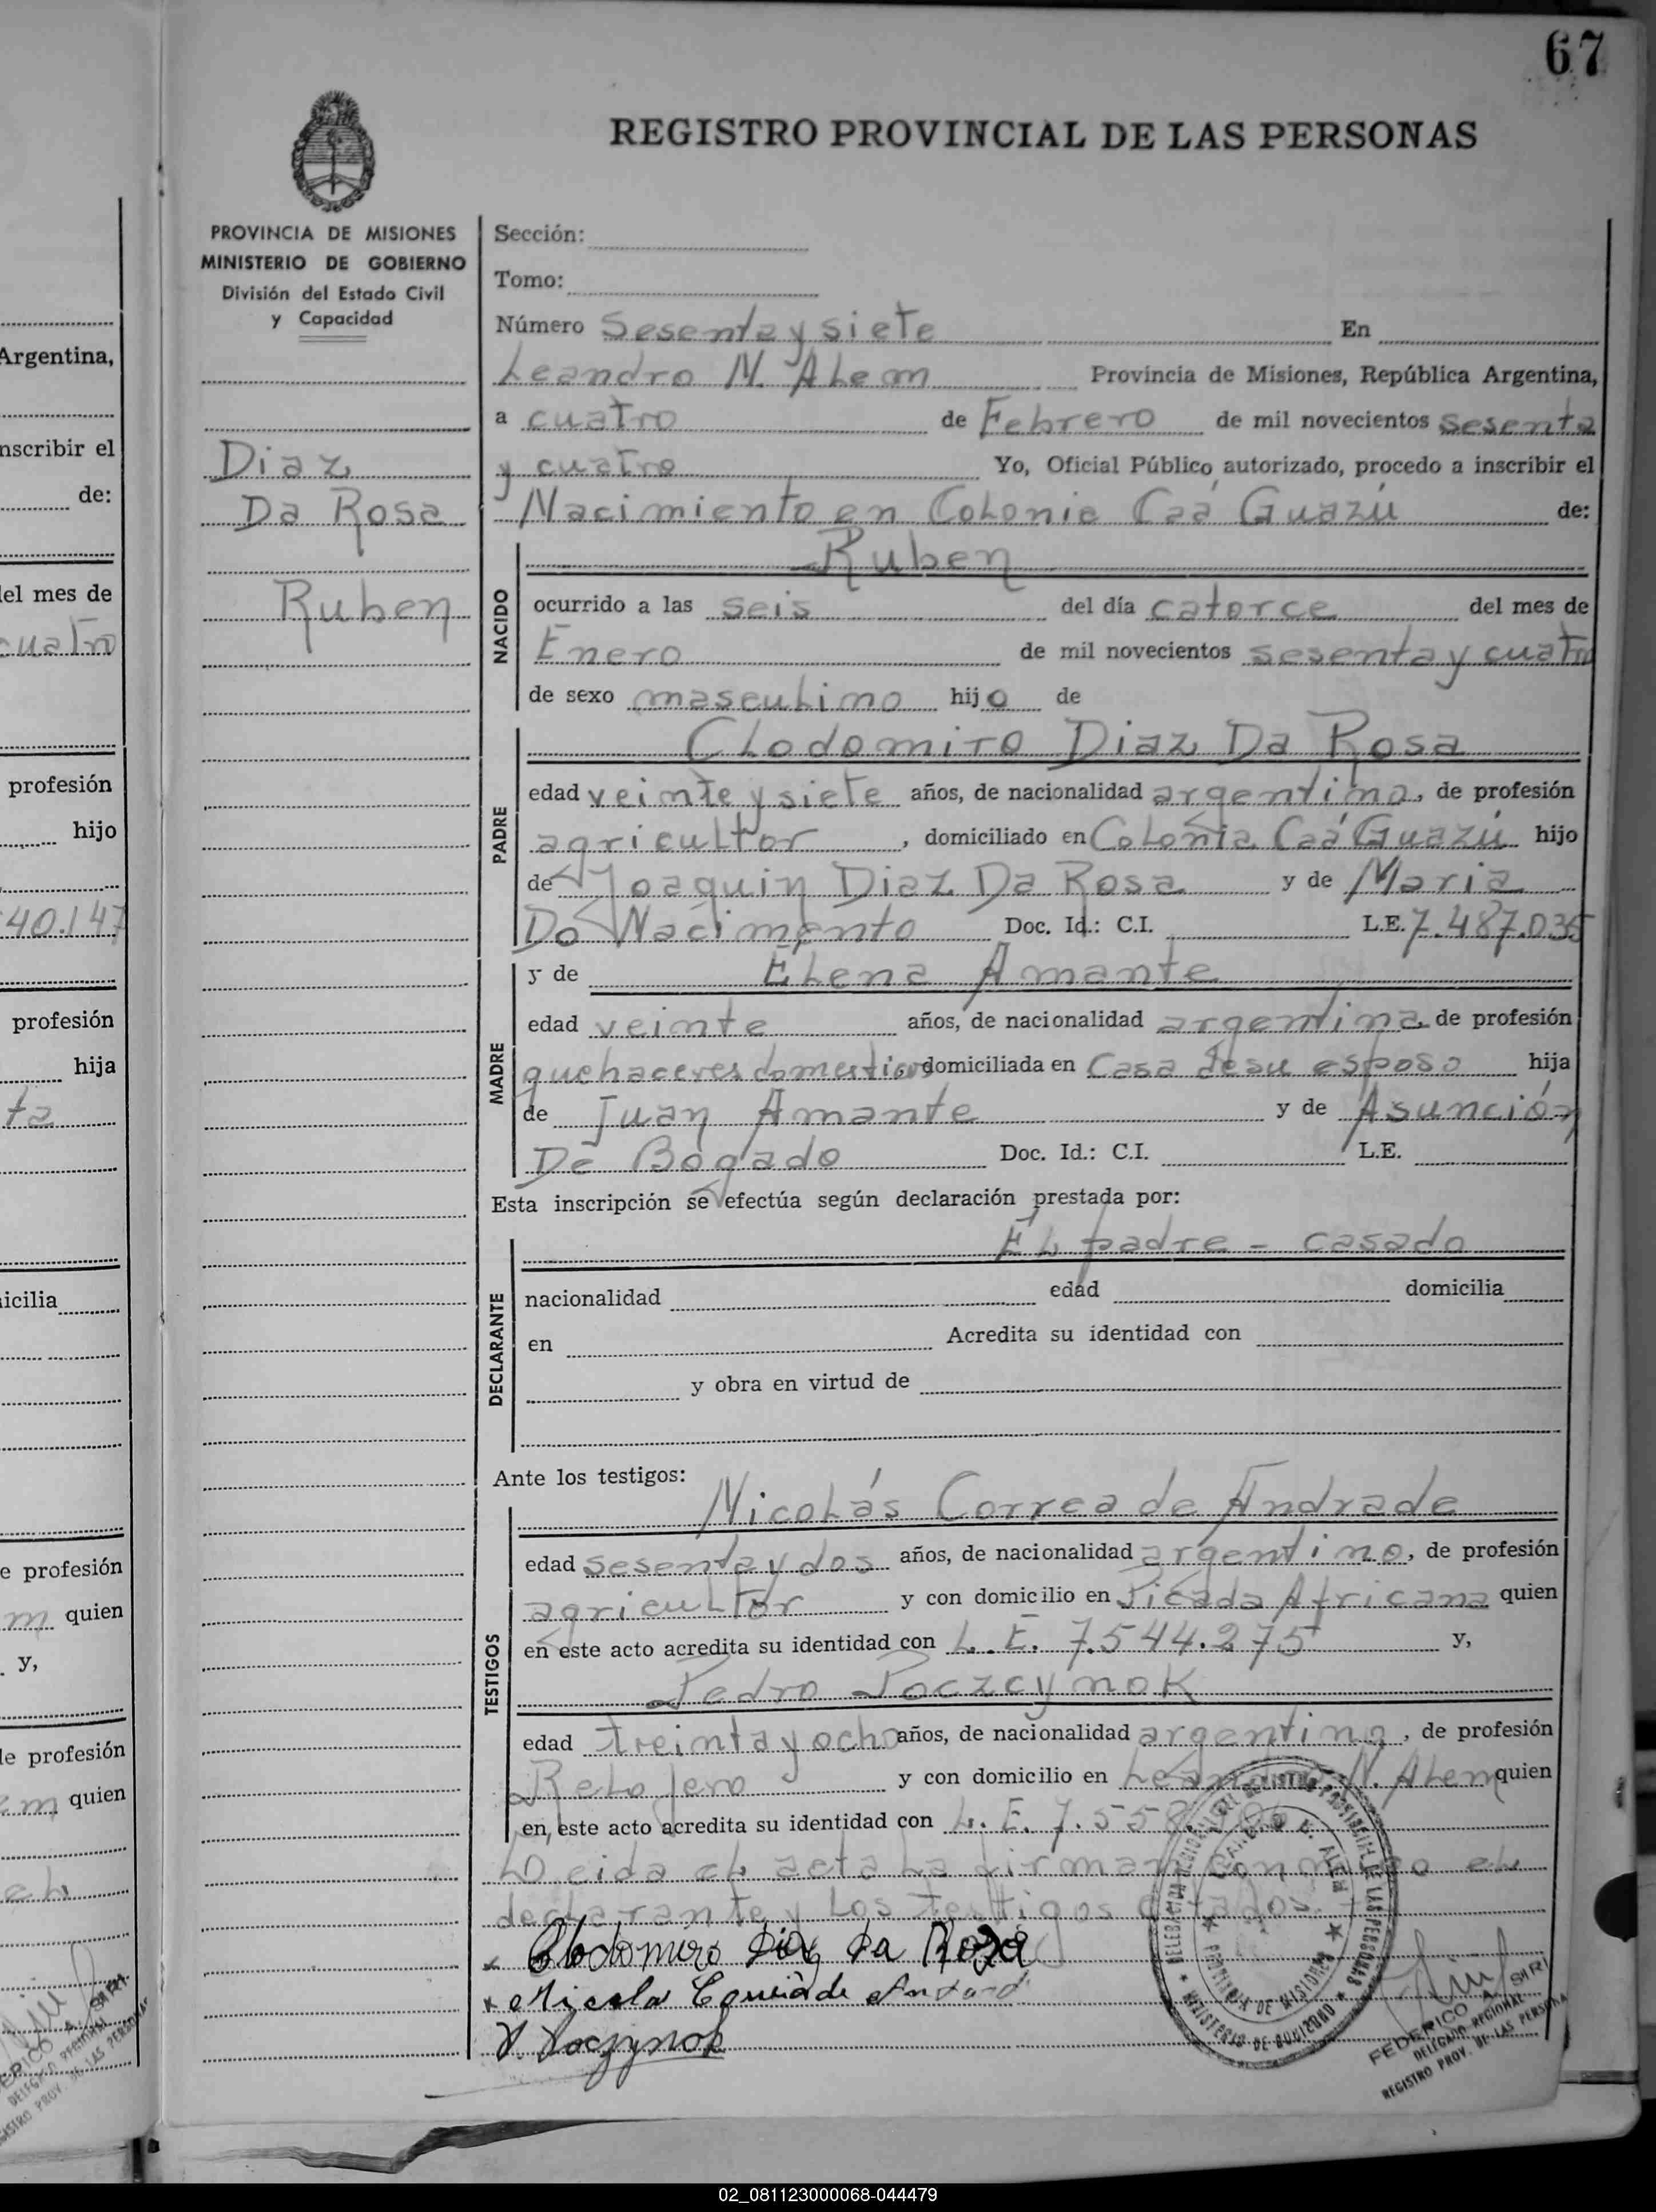 67
REGISTRO PROVINCIAL DE LAS PERSONAS
PROVINCIA DE MISIONES
MINISTERIO DE GOBIERNO
División del Estado Civil
y Capacidad
Diaz
Da Rosa
Ruben
Sección:
Tomo:
Número Sesenta y siete En
Leandro N. ALem Provincia de Misiones, República Argentina,
a cuatro de Febrero de mil novecientos sesenta
y cuatro Yo, Oficial Público autorizado, procedo a inscribir el
Nacimiento en Colonia Caá Guazú de:
NACIDO
Ruben
ocurrido a las seis del día catorce del mes de
Enero de mil novecientos sesenta y cuatro
de sexo masculino hijo de
PADRE
Clodomiro Diaz Da Rosa
edad veinte y siete años, de nacionalidad argentina, de profesión
agricultor, domiciliado en Colonia Caá Guazú hijo
de Joaquin Diaz Da Rosa y de Maria
Do Nacimento Doc. Id.: C.I. L.E. 7.487.035
MADRE
y de Elena Amante
edad veinte años, de nacionalidad argentina de profesión
quehaceres domesticos domiciliada en Casa de su esposo hija
de Juan Amante y de Asunción
De Bogado Doc. Id.: C.I. L.E.
Esta inscripción se efectúa según declaración prestada por:
DECLARANTE
El padre - casado
nacionalidad edad domicilia
en Acredita su identidad con
y obra en virtud de
Ante los testigos:
TESTIGOS
Nicolás Correa de Andrade
edad sesenta y dos años, de nacionalidad argentino, de profesión
agricultor y con domicilio en Picada Africana quien
en este acto acredita su identidad con L.E. 7.544.275 y,
Pedro Poczcynok
edad treinta y ocho años, de nacionalidad argentino, de profesión
Relojero y con domicilio en Leandro N. Alem quien
en este acto acredita su identidad con L.E. 7.558.
Leida el acta la firman conmigo el
declarante y los testigos citados.
Clodomiro Diaz Da Roza
Nicola Correia de Andard
P. Poczynok
DELEGACION REGIONAL DEL REGISTRO PROVINCIAL DE LAS PERSONAS
LEANDRO N. ALEM
PROVINCIA DE MISIONES
MINISTERIO DE GOBIERNO
FEDERICO A. SIRI
DELEGADO REGIONAL
REGISTRO PROV. DE LAS PERSONAS
Argentina,
nscribir el
de:
del mes de
cuatro
profesión
hijo
40.147
profesión
hija
ta
icilia
e profesión
m quien
y,
de profesión
em quien
el
02_081123000068-044479